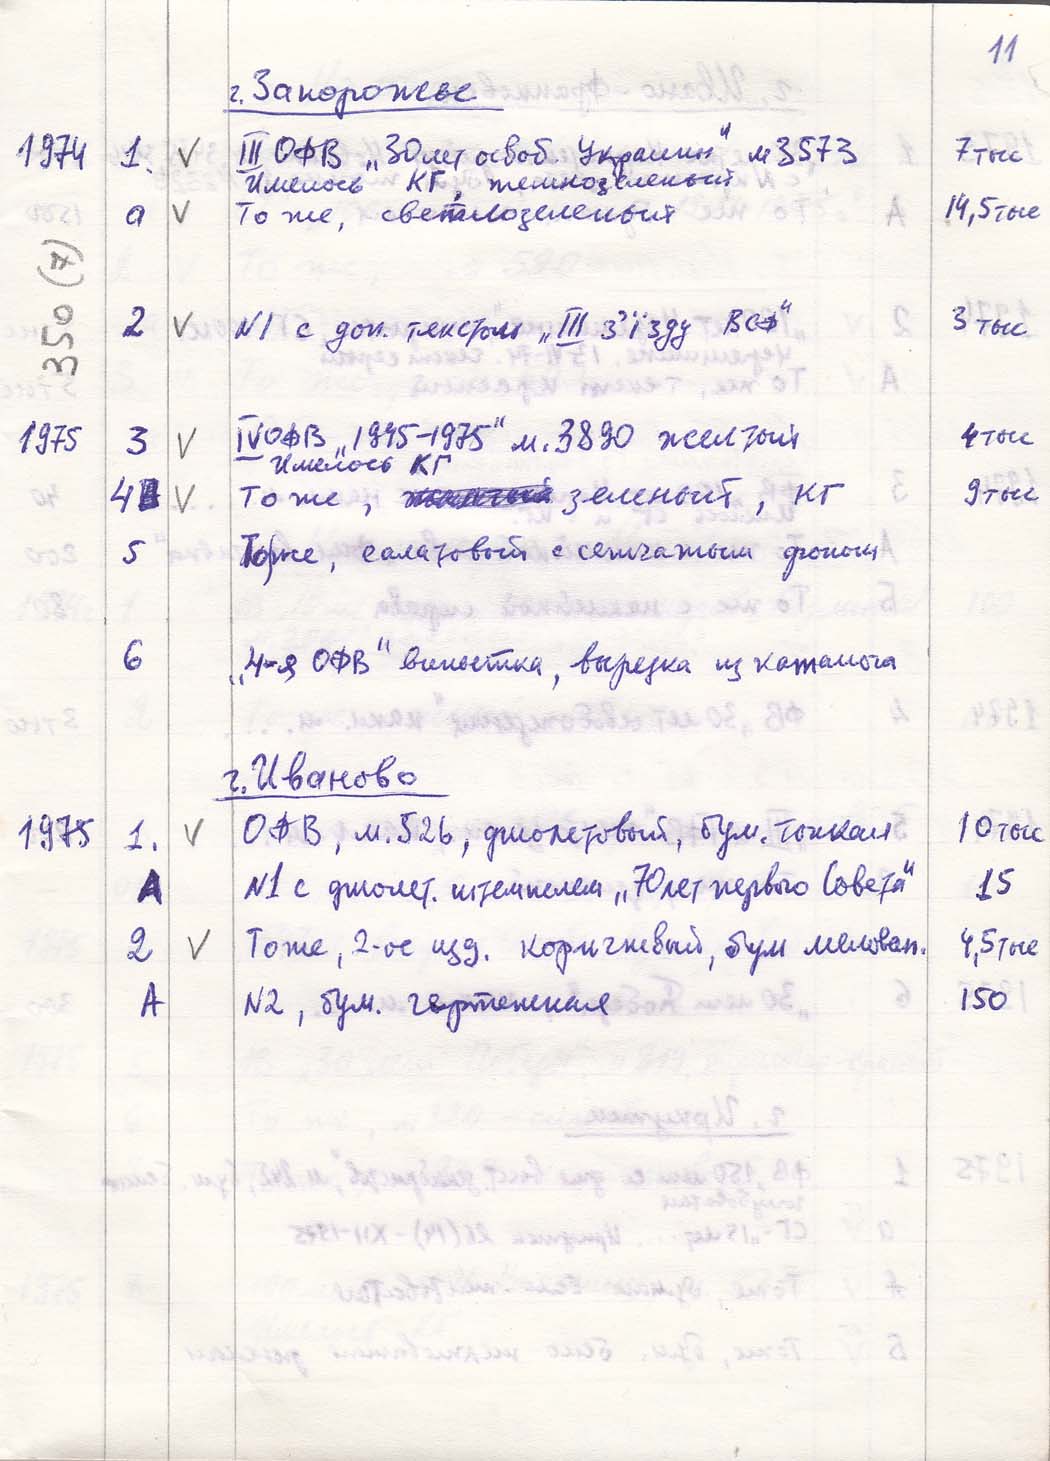 11
г. Запорожье
1974 1. V III ОФВ „30 лет освоб. Украины" м 3573 7 тыс
Имелось КГ, темнозеленый
а V То же, светлозеленый 14,5 тыс
350 (7)
2 V N1 с доп. текстом „III З'їзду ВСФ" 3 тыс
1975 3 V IV ОФВ „1945-1975" м. 3890 желтый 4 тыс
Имелось КГ
4 V То же, зеленый, КГ 9 тыс
5 То же, салатовый с сетчатым фоном
6 „4-я ОФВ" виньетка, вырезка из каталога
г. Иваново
1975 1. V ОФВ, м. 526, фиолетовый, бум. тонкая 10 тыс
А N1 с фиолет. штемпелем „70 лет первого Совета" 15
2 V То же, 2-ое изд. коричневый, бум мелован. 4,5 тыс
А N2, бум. чертежная 150